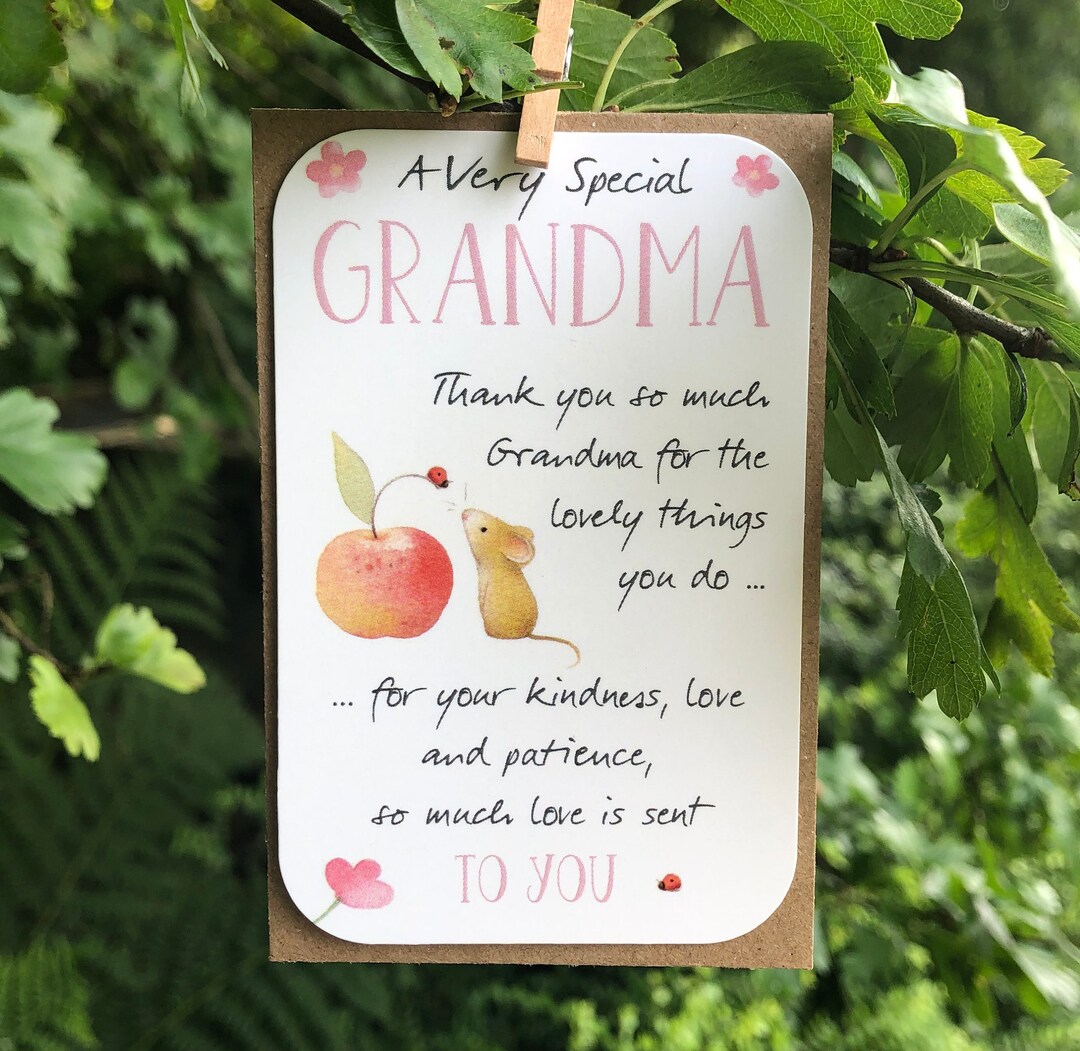 A Very Special
GRANDMA
Thank you so much
Grandma for the
lovely things
you do ...
... for your kindness, love
and patience,
so much love is sent
TO YOU